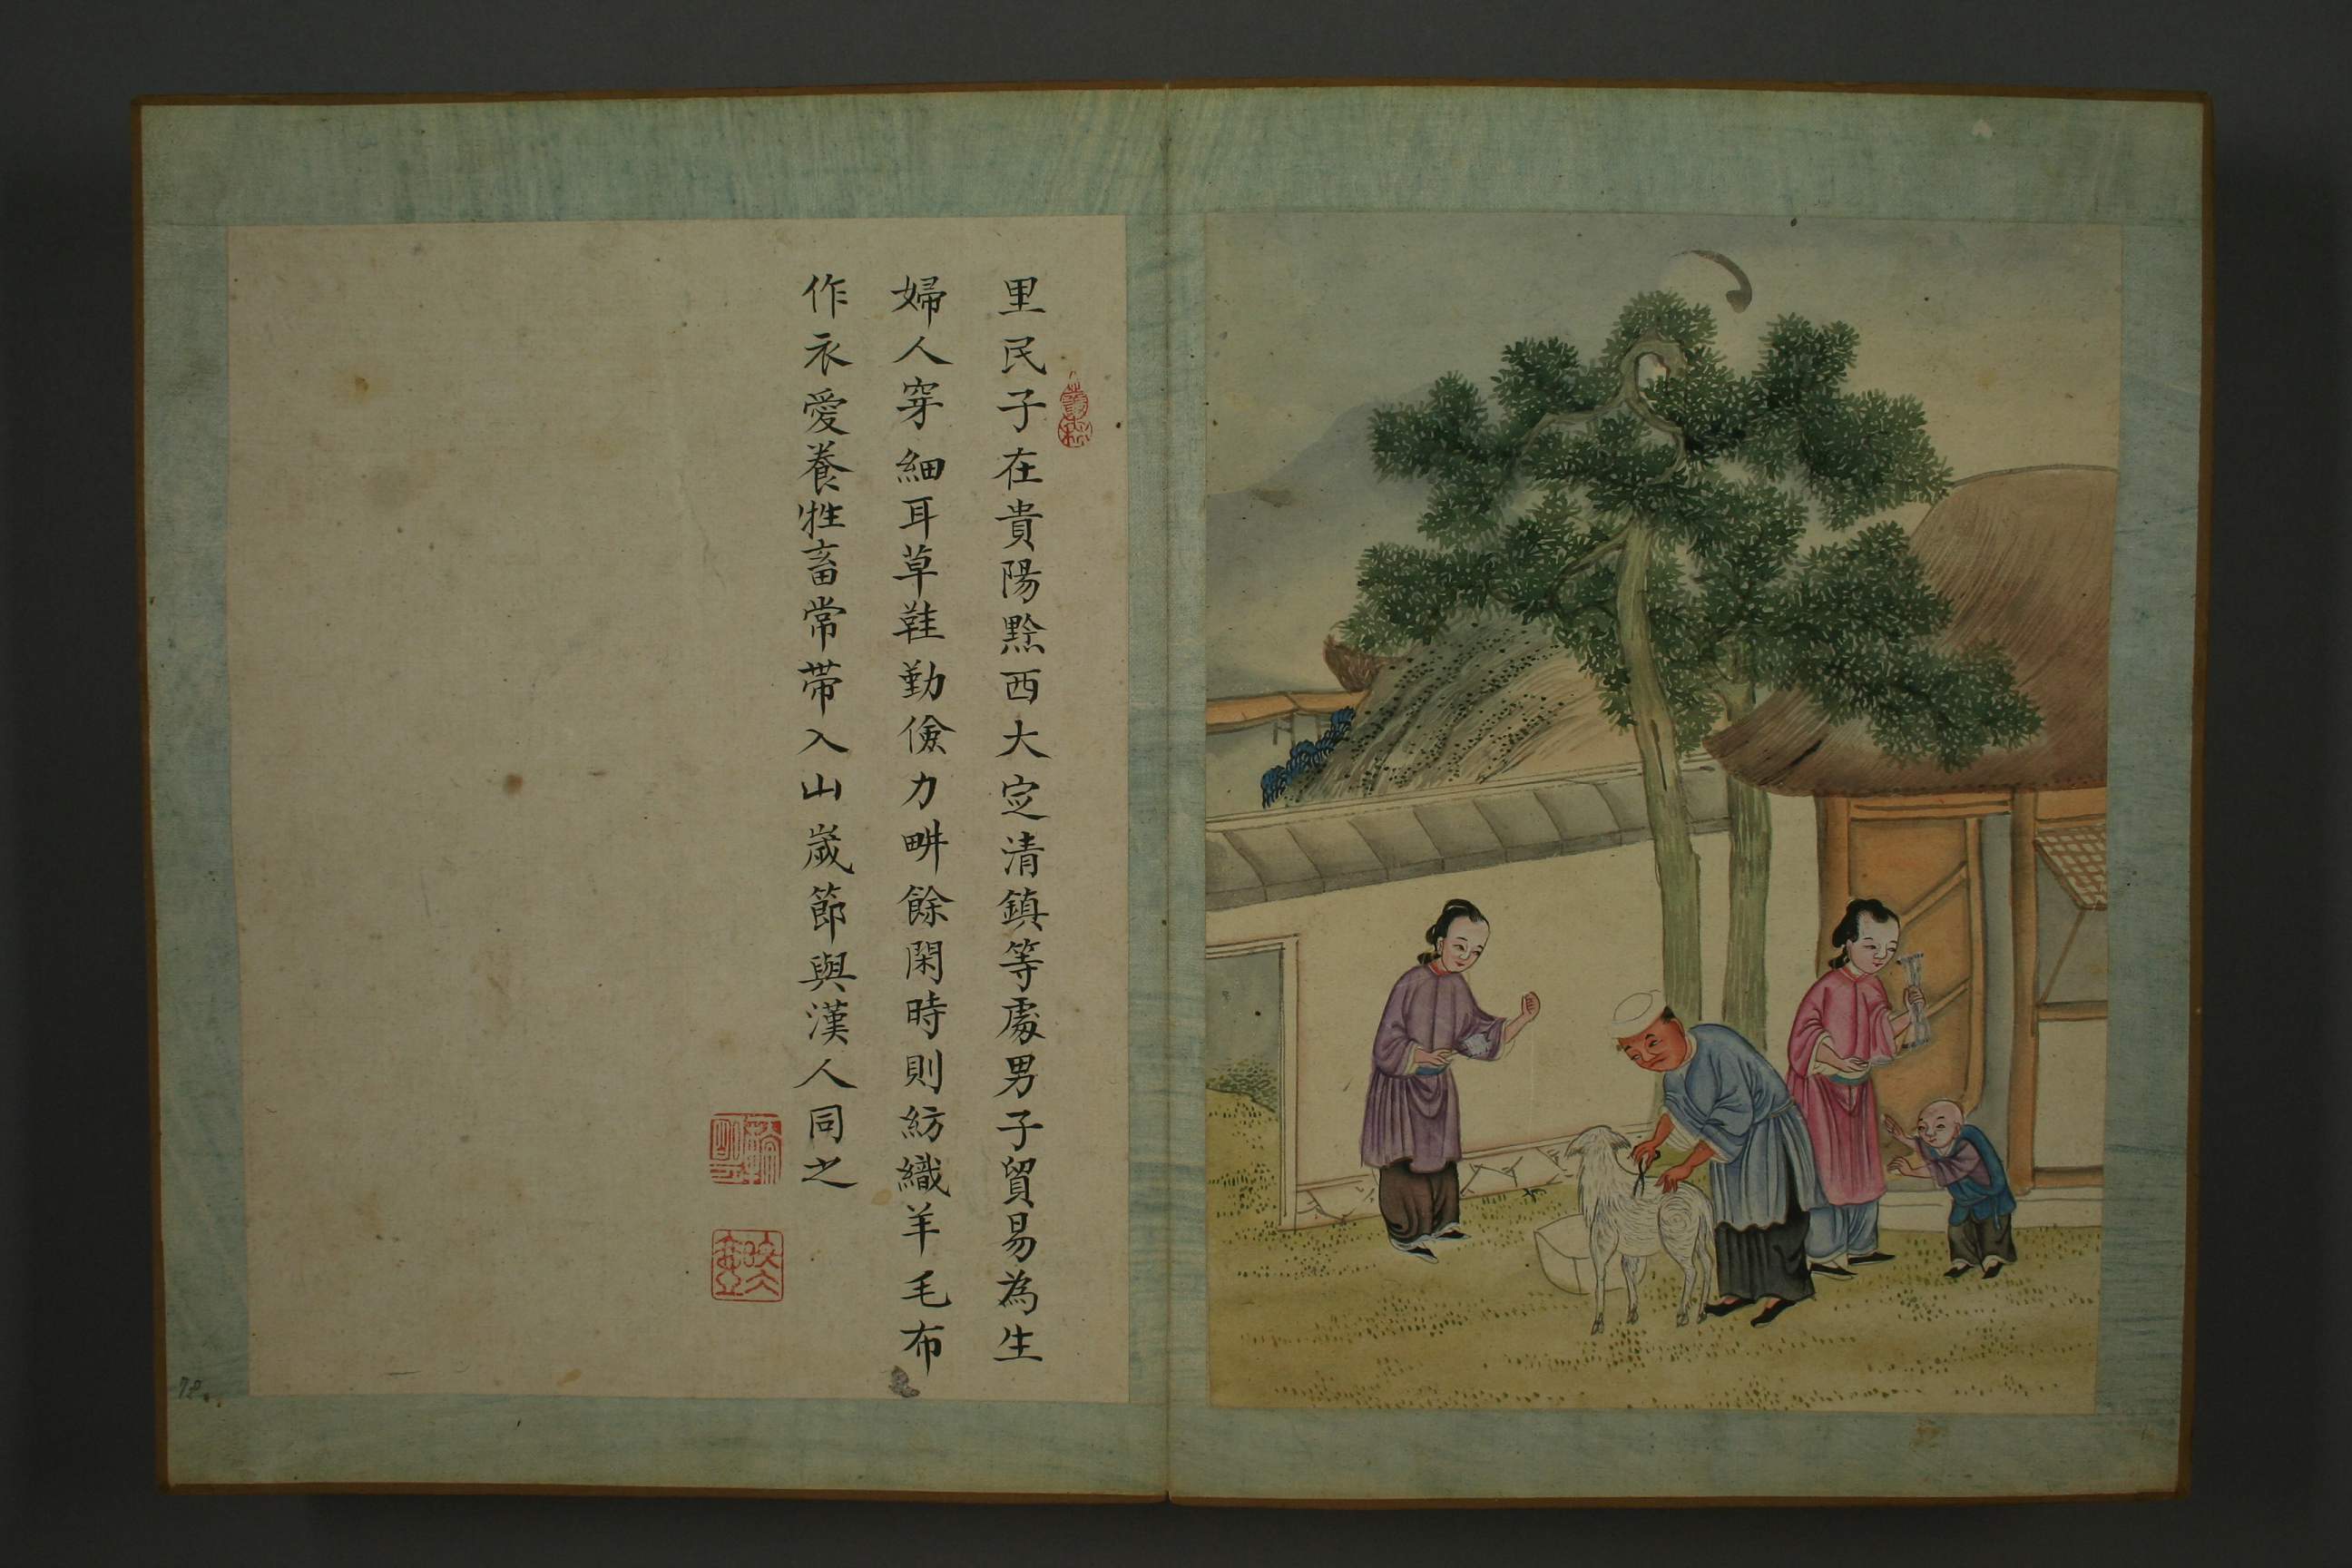 里民子在貴陽黔西大定清鎮等處男子貿易為生
婦人穿細耳草鞋勤儉力畊餘閑時則紡織羊毛布
作衣愛養牲畜常帶入山嵗節與漢人同之
78.